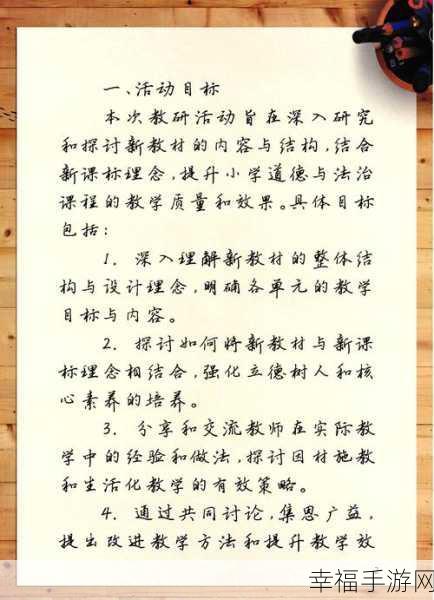 一、活动目标
本次教研活动旨在深入研究
和探讨新教材的内容与结构,结合
新课标理念,提升小学道德与法治
课程的教学质量和效果。具体目标
包括:
1. 深入理解新教材的整体结
构与设计理念,明确各单元的教学
目标与内容。
2. 探讨如何将新教材与新课
标理念相结合,强化立德树人和核
心素养的培养。
3. 分享和交流教师在实际教
学中的经验和做法,探讨因材施教
和生活化教学的有效策略。
4. 通过共同讨论,集思广益,
提出改进教学方法和提升教学效
幸福手游网